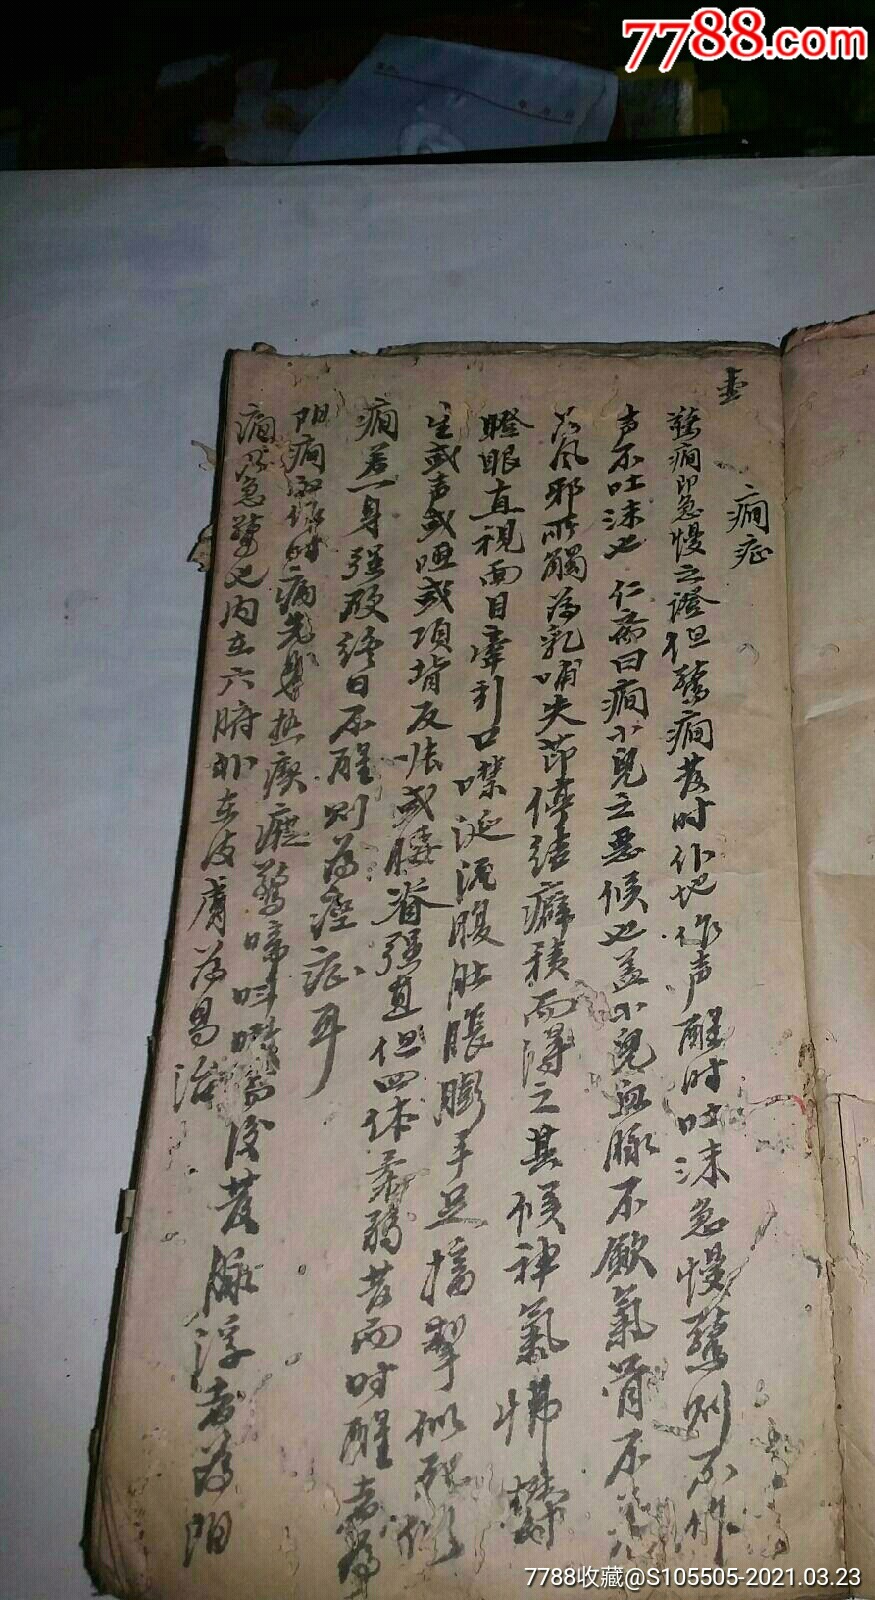 7788.com
壹
癇症
驚癇即急慢之證但驚癇發时仆地作声醒时吐沫急慢驚則不作
声不吐沫也 仁斎曰癇小兒之惡候也盖小兒血脉不歛氣骨不
為風邪所觸為乳哺失節停結癖積而得之其候神氣怫欝
瞪眼直視面目牽引口噤涎流腹肚膨脹手足搐掣似死似
生或声或哑或項背反张或腰脊强直但四体柔弱發而时醒者為
癇若一身强硬終日不醒則為痙症耳
阳癇初作时病先身热瘈瘲驚啼叫喚而後發脉浮者為阳
癇乃急驚也内在六腑外在皮膚為易治
7788收藏@S105505-2021.03.23